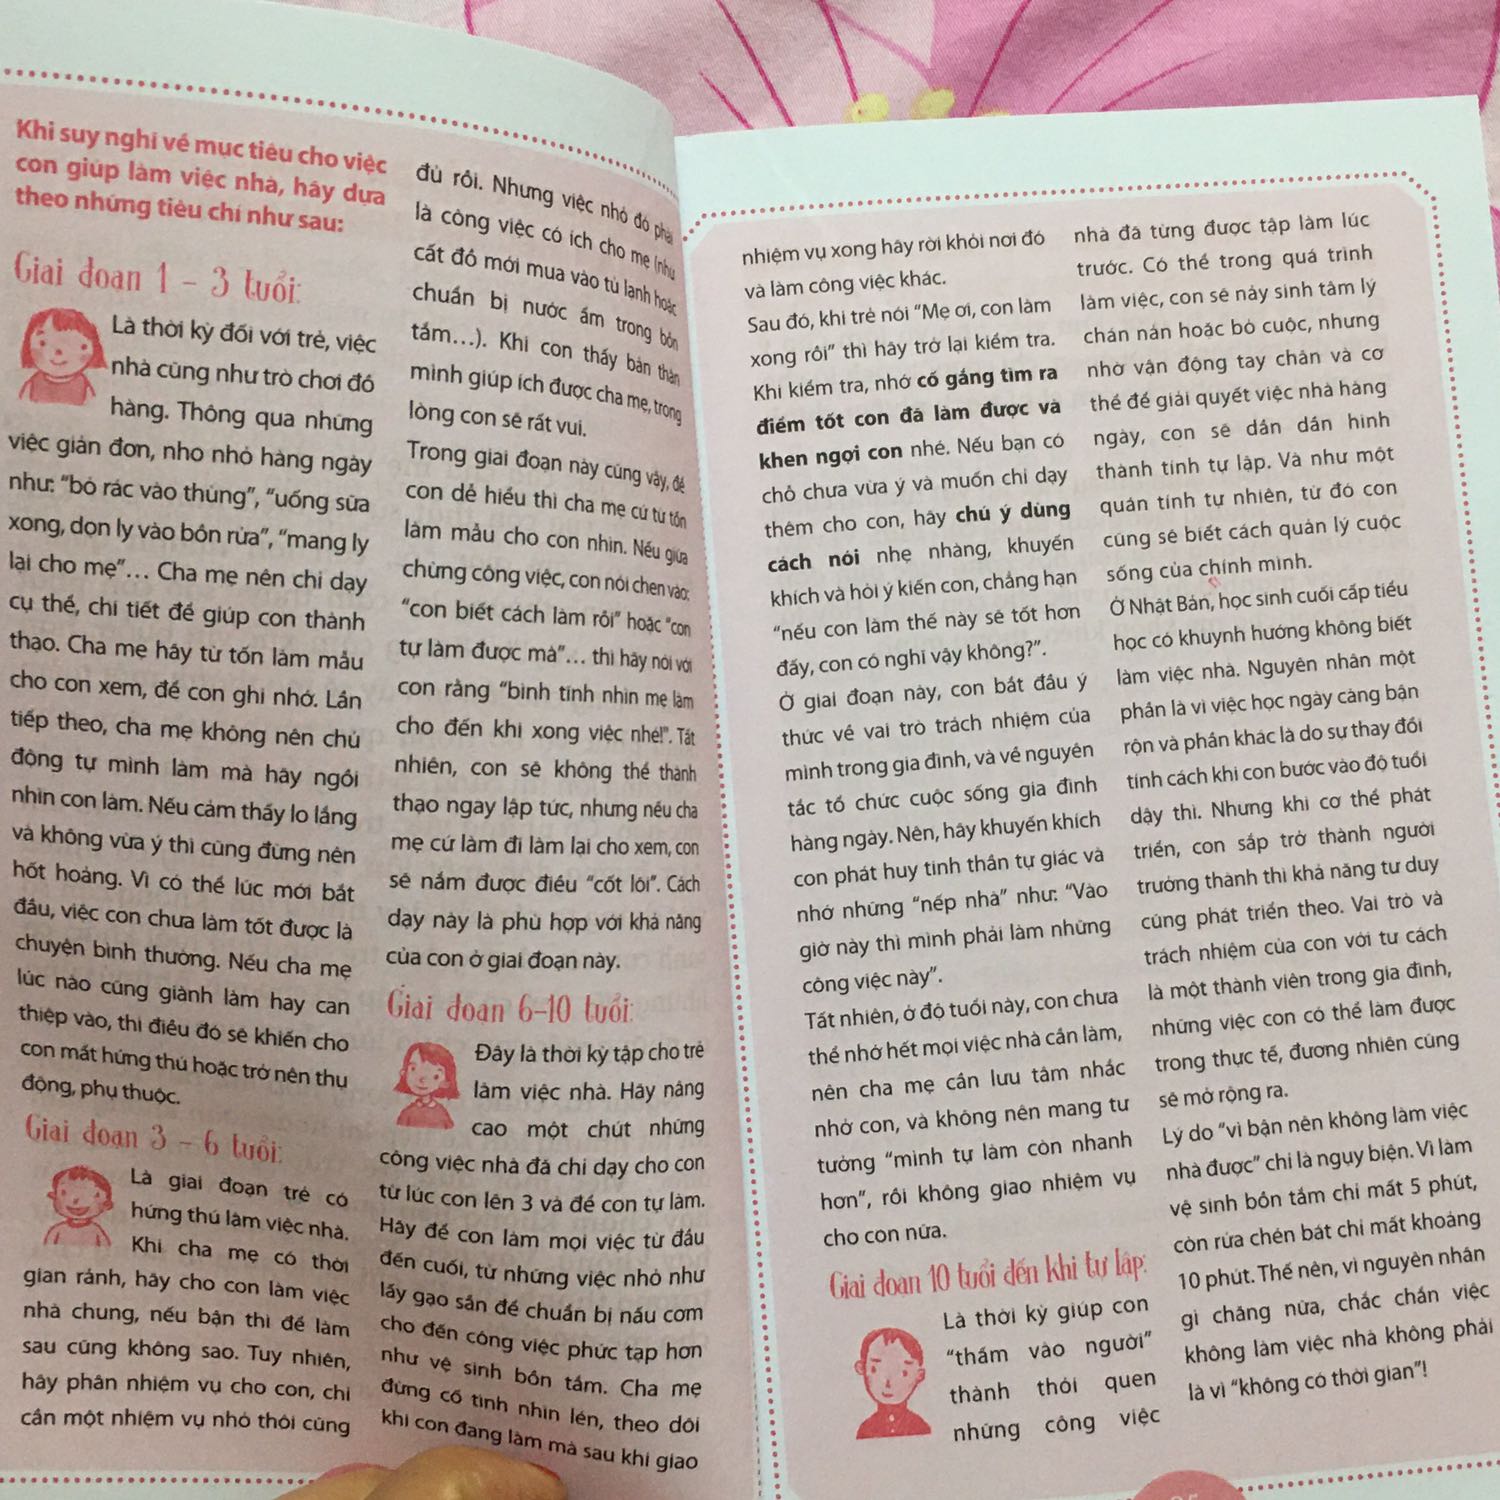 Khi suy nghĩ về mục tiêu cho việc
con giúp làm việc nhà, hãy dựa
theo những tiêu chí như sau:
Giai đoạn 1 – 3 tuổi:
Là thời kỳ đối với trẻ, việc
nhà cũng như trò chơi đồ
hàng. Thông qua những
việc giản đơn, nho nhỏ hàng ngày
như: “bỏ rác vào thùng”, “uống sữa
xong, dọn ly vào bồn rửa”, “mang ly
lại cho mẹ”... Cha mẹ nên chỉ dạy
cụ thể, chi tiết để giúp con thành
thạo. Cha mẹ hãy từ tốn làm mẫu
cho con xem, để con ghi nhớ. Lần
tiếp theo, cha mẹ không nên chủ
động tự mình làm mà hãy ngồi
nhìn con làm. Nếu cảm thấy lo lắng
và không vừa ý thì cũng đừng nên
hốt hoảng. Vì có thể lúc mới bắt
đầu, việc con chưa làm tốt được là
chuyện bình thường. Nếu cha mẹ
lúc nào cũng giành làm hay can
thiệp vào, thì điều đó sẽ khiến cho
con mất hứng thú hoặc trở nên thụ
động, phụ thuộc.
Giai đoạn 3 – 6 tuổi:
Là giai đoạn trẻ có
hứng thú làm việc nhà.
Khi cha mẹ có thời
gian rảnh, hãy cho con làm việc
nhà chung, nếu bận thì để làm
sau cũng không sao. Tuy nhiên,
hãy phân nhiệm vụ cho con, chỉ
cần một nhiệm vụ nhỏ thôi cũng
đủ rồi. Nhưng việc nhỏ đó phải
là công việc có ích cho mẹ (như
cất đồ mới mua vào tủ lạnh hoặc
chuẩn bị nước ấm trong bồn
tắm...). Khi con thấy bản thân
mình giúp ích được cha mẹ, trong
lòng con sẽ rất vui.
Trong giai đoạn này cũng vậy, để
con dễ hiểu thì cha mẹ cứ từ tốn
làm mẫu cho con nhìn. Nếu giữa
chừng công việc, con nói chen vào:
“con biết cách làm rồi” hoặc “con
tự làm được mà”... thì hãy nói với
con rằng “bình tĩnh nhìn mẹ làm
cho đến khi xong việc nhé!”. Tất
nhiên, con sẽ không thể thành
thạo ngay lập tức, nhưng nếu cha
mẹ cứ làm đi làm lại cho xem, con
sẽ nắm được điều “cốt lõi”. Cách
dạy này là phù hợp với khả năng
của con ở giai đoạn này.
Giai đoạn 6–10 tuổi:
Đây là thời kỳ tập cho trẻ
làm việc nhà. Hãy nâng
cao một chút những
công việc nhà đã chỉ dạy cho con
từ lúc con lên 3 và để con tự làm.
Hãy để con làm mọi việc từ đầu
đến cuối, từ những việc nhỏ như
lấy gạo sẵn để chuẩn bị nấu cơm
cho đến công việc phức tạp hơn
như vệ sinh bồn tắm. Cha mẹ
đừng cố tình nhìn lén, theo dõi
khi con đang làm mà sau khi giao
nhiệm vụ xong hãy rời khỏi nơi đó
và làm công việc khác.
Sau đó, khi trẻ nói “Mẹ ơi, con làm
xong rồi” thì hãy trở lại kiểm tra.
Khi kiểm tra, nhớ cố gắng tìm ra
điểm tốt con đã làm được và
khen ngợi con nhé. Nếu bạn có
chỗ chưa vừa ý và muốn chỉ dạy
thêm cho con, hãy chú ý dùng
cách nói nhẹ nhàng, khuyến
khích và hỏi ý kiến con, chẳng hạn
“nếu con làm thế này sẽ tốt hơn
đấy, con có nghĩ vậy không?”.
Ở giai đoạn này, con bắt đầu ý
thức về vai trò trách nhiệm của
mình trong gia đình, và về nguyên
tắc tổ chức cuộc sống gia đình
hàng ngày. Nên, hãy khuyến khích
con phát huy tinh thần tự giác và
nhớ những “nếp nhà” như: “Vào
giờ này thì mình phải làm những
công việc này”.
Tất nhiên, ở độ tuổi này, con chưa
thể nhớ hết mọi việc nhà cần làm,
nên cha mẹ cần lưu tâm nhắc
nhở con, và không nên mang tư
tưởng “mình tự làm còn nhanh
hơn”, rồi không giao nhiệm vụ
cho con nữa.
Giai đoạn 10 tuổi đến khi tự lập:
Là thời kỳ giúp con
“thấm vào người”
thành thói quen
những công việc
nhà đã từng được tập làm lúc
trước. Có thể trong quá trình
làm việc, con sẽ nảy sinh tâm lý
chán nản hoặc bỏ cuộc, nhưng
nhờ vận động tay chân và cơ
thể để giải quyết việc nhà hàng
ngày, con sẽ dần dần hình
thành tính tự lập. Và như một
quán tính tự nhiên, từ đó con
cũng sẽ biết cách quản lý cuộc
sống của chính mình.
Ở Nhật Bản, học sinh cuối cấp tiểu
học có khuynh hướng không biết
làm việc nhà. Nguyên nhân một
phần là vì việc học ngày càng bận
rộn và phần khác là do sự thay đổi
tính cách khi con bước vào độ tuổi
dậy thì. Nhưng khi cơ thể phát
triển, con sắp trở thành người
trưởng thành thì khả năng tư duy
cũng phát triển theo. Vai trò và
trách nhiệm của con với tư cách
là một thành viên trong gia đình,
những việc con có thể làm được
trong thực tế, đương nhiên cũng
sẽ mở rộng ra.
Lý do “vì bận nên không làm việc
nhà được” chỉ là ngụy biện. Vì làm
vệ sinh bồn tắm chỉ mất 5 phút,
còn rửa chén bát chỉ mất khoảng
10 phút. Thế nên, vì nguyên nhân
gì chăng nữa, chắc chắn việc
không làm việc nhà không phải
là vì “không có thời gian”!